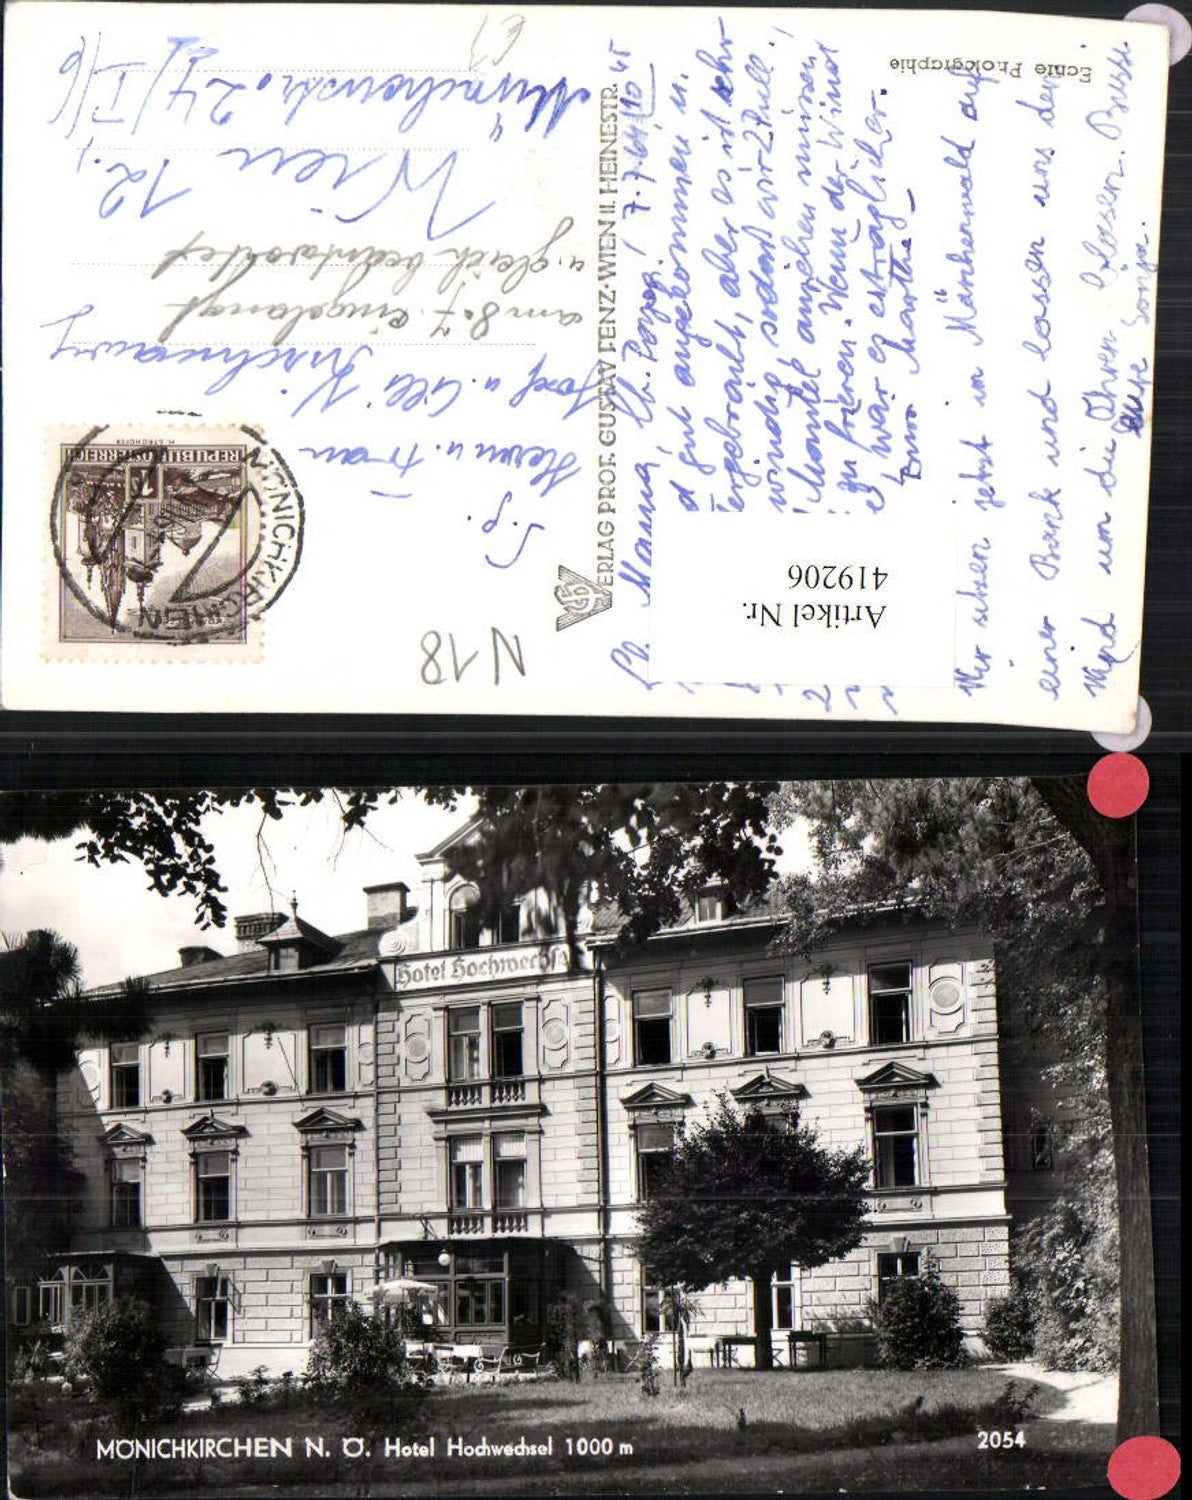 Echte Photographie
VERLAG PROF. GUSTAV FENZ·WIEN II. HEINESTR.
REPUBLIK ÖSTERREICH
MÖNICHKIRCHEN
N 18
S. g.
Herrn u. Frau
Josef u. Elli
am 8.7. eingelangt
u. gleich beantwortet
Wien 12.,
24/I/6
Lb. Mama, Lb. Papa! 7.7.64
gut angekommen u.
aber es ist sehr
windig, sodaß wir 2 Pull.
Mantel anziehen müssen
zu frieren. Wenn der Wind
wär es erträglicher.
Marthe
Artikel Nr.
419206
Wir sitzen jetzt im Märchenwald auf
einer Bank und lassen uns den
Wind um die Ohren blasen. Bussi
Eure Sonja.
Hotel Hochwechsel
MÖNICHKIRCHEN N. Ö. Hotel Hochwechsel 1000 m
2054